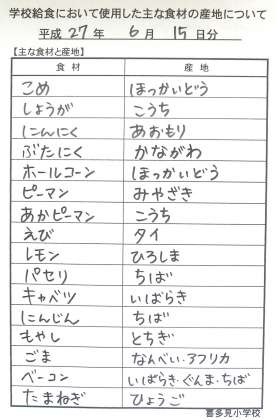 学校給食において使用した主な食材の産地について
平成 27 年 6 月 15 日分
【主な食材と産地】
食材 産地
こめ ほっかいどう
しょうが こうち
にんにく あおもり
ぶたにく かながわ
ホールコーン ほっかいどう
ピーマン みやざき
あかピーマン こうち
えび タイ
レモン ひろしま
パセリ ちば
キャベツ いばらき
にんじん ちば
もやし とちぎ
ごま なんべい・アフリカ
ベーコン いばらき・ぐんま・ちば
たまねぎ ひょうご
喜多見小学校